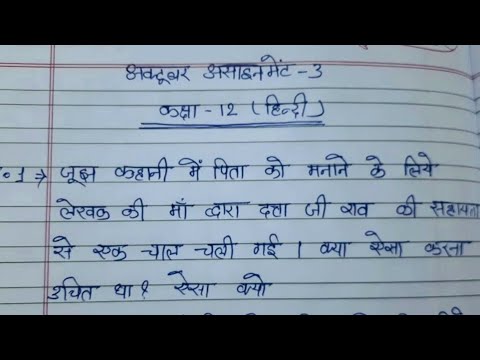 अक्टूबर असाइनमेंट - 3
कक्षा - 12 (हिन्दी)
.1 ⇒ जूझ कहानी में पिता को मनाने के लिये
लेखक की माँ द्वारा दत्ता जी राव की सहायता
से एक चाल चली गई । क्या ऐसा करना
उचित था ? ऐसा क्यो